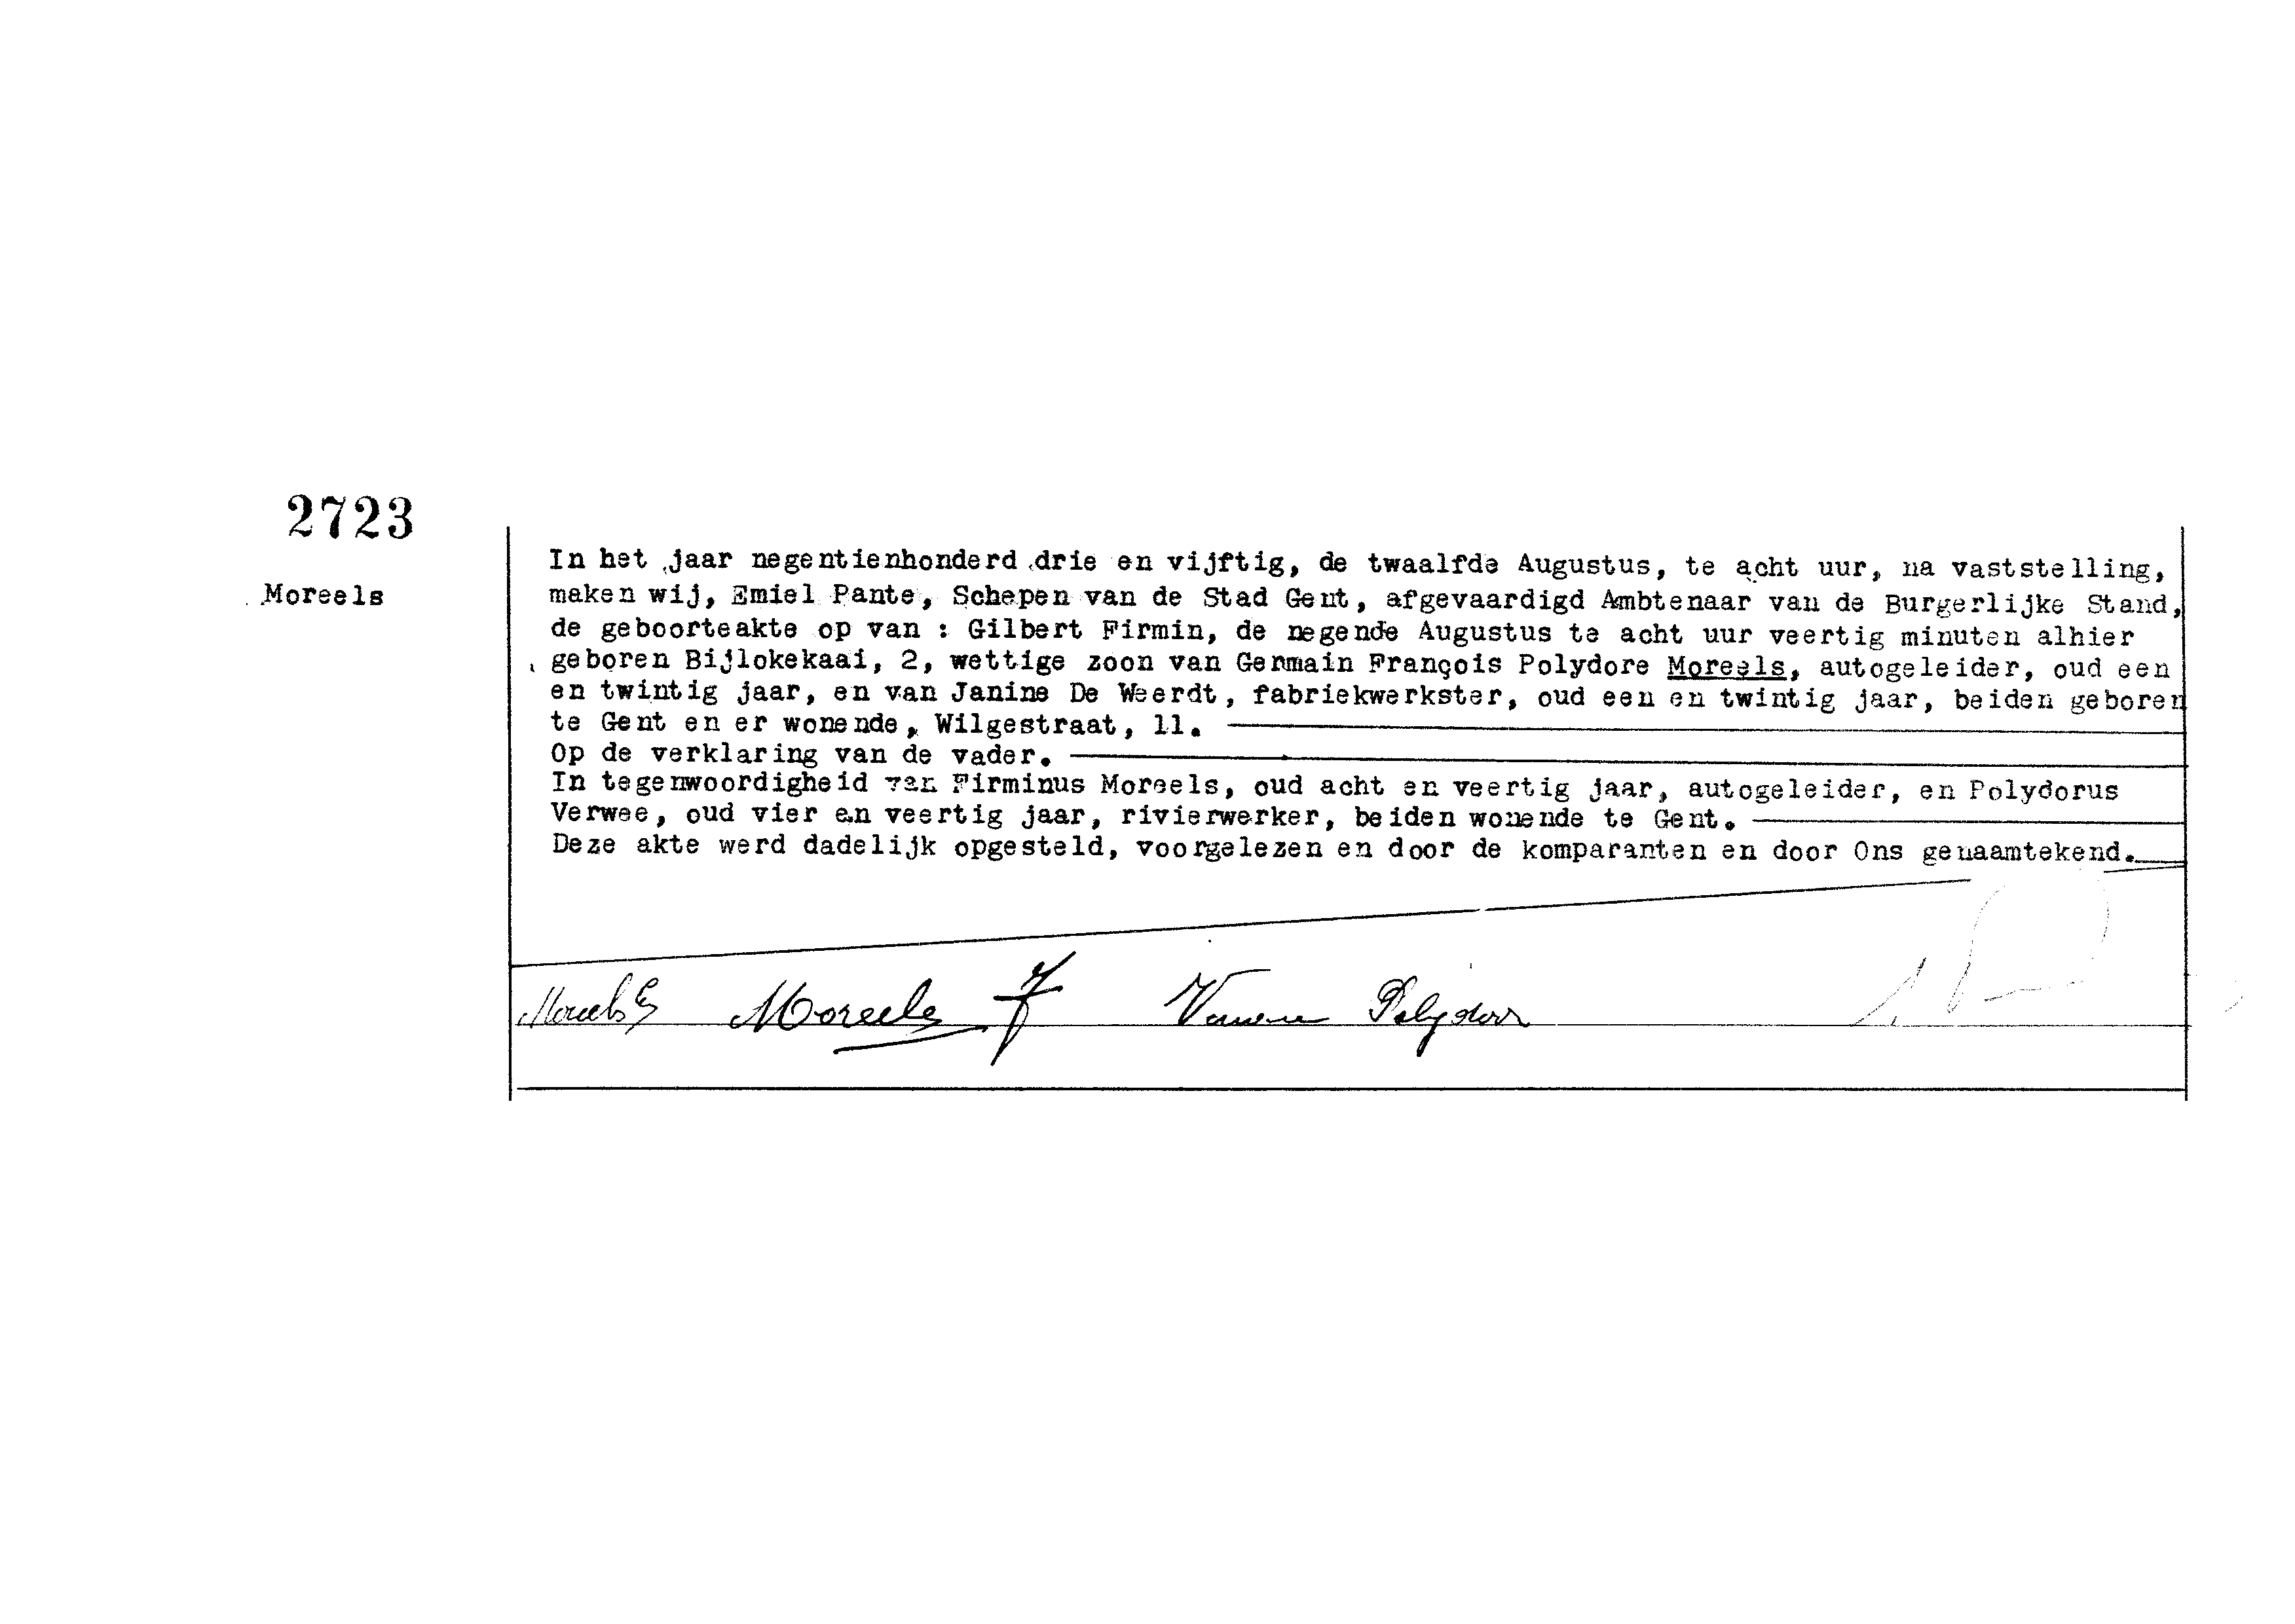 2723
Moreels
In het jaar negentienhonderd drie en vijftig, de twaalfde Augustus, te acht uur, na vaststelling,
maken wij, Emiel Pante, Schepen van de Stad Gent, afgevaardigd Ambtenaar van de Burgerlijke Stand,
de geboorteakte op van : Gilbert Firmin, de negende Augustus te acht uur veertig minuten alhier
geboren Bijlokekaai, 2, wettige zoon van Germain François Polydore Moreels, autogeleider, oud een
en twintig jaar, en van Janine De Weerdt, fabriekwerkster, oud een en twintig jaar, beiden geboren
te Gent en er wonende, Wilgestraat, 11.
Op de verklaring van de vader.
In tegenwoordigheid van Firminus Moreels, oud acht en veertig jaar, autogeleider, en Polydorus
Verwee, oud vier en veertig jaar, rivierwerker, beiden wonende te Gent.
Deze akte werd dadelijk opgesteld, voorgelezen en door de komparanten en door Ons genaamtekend.
Moreels G Moreels F Verwee Polydoor